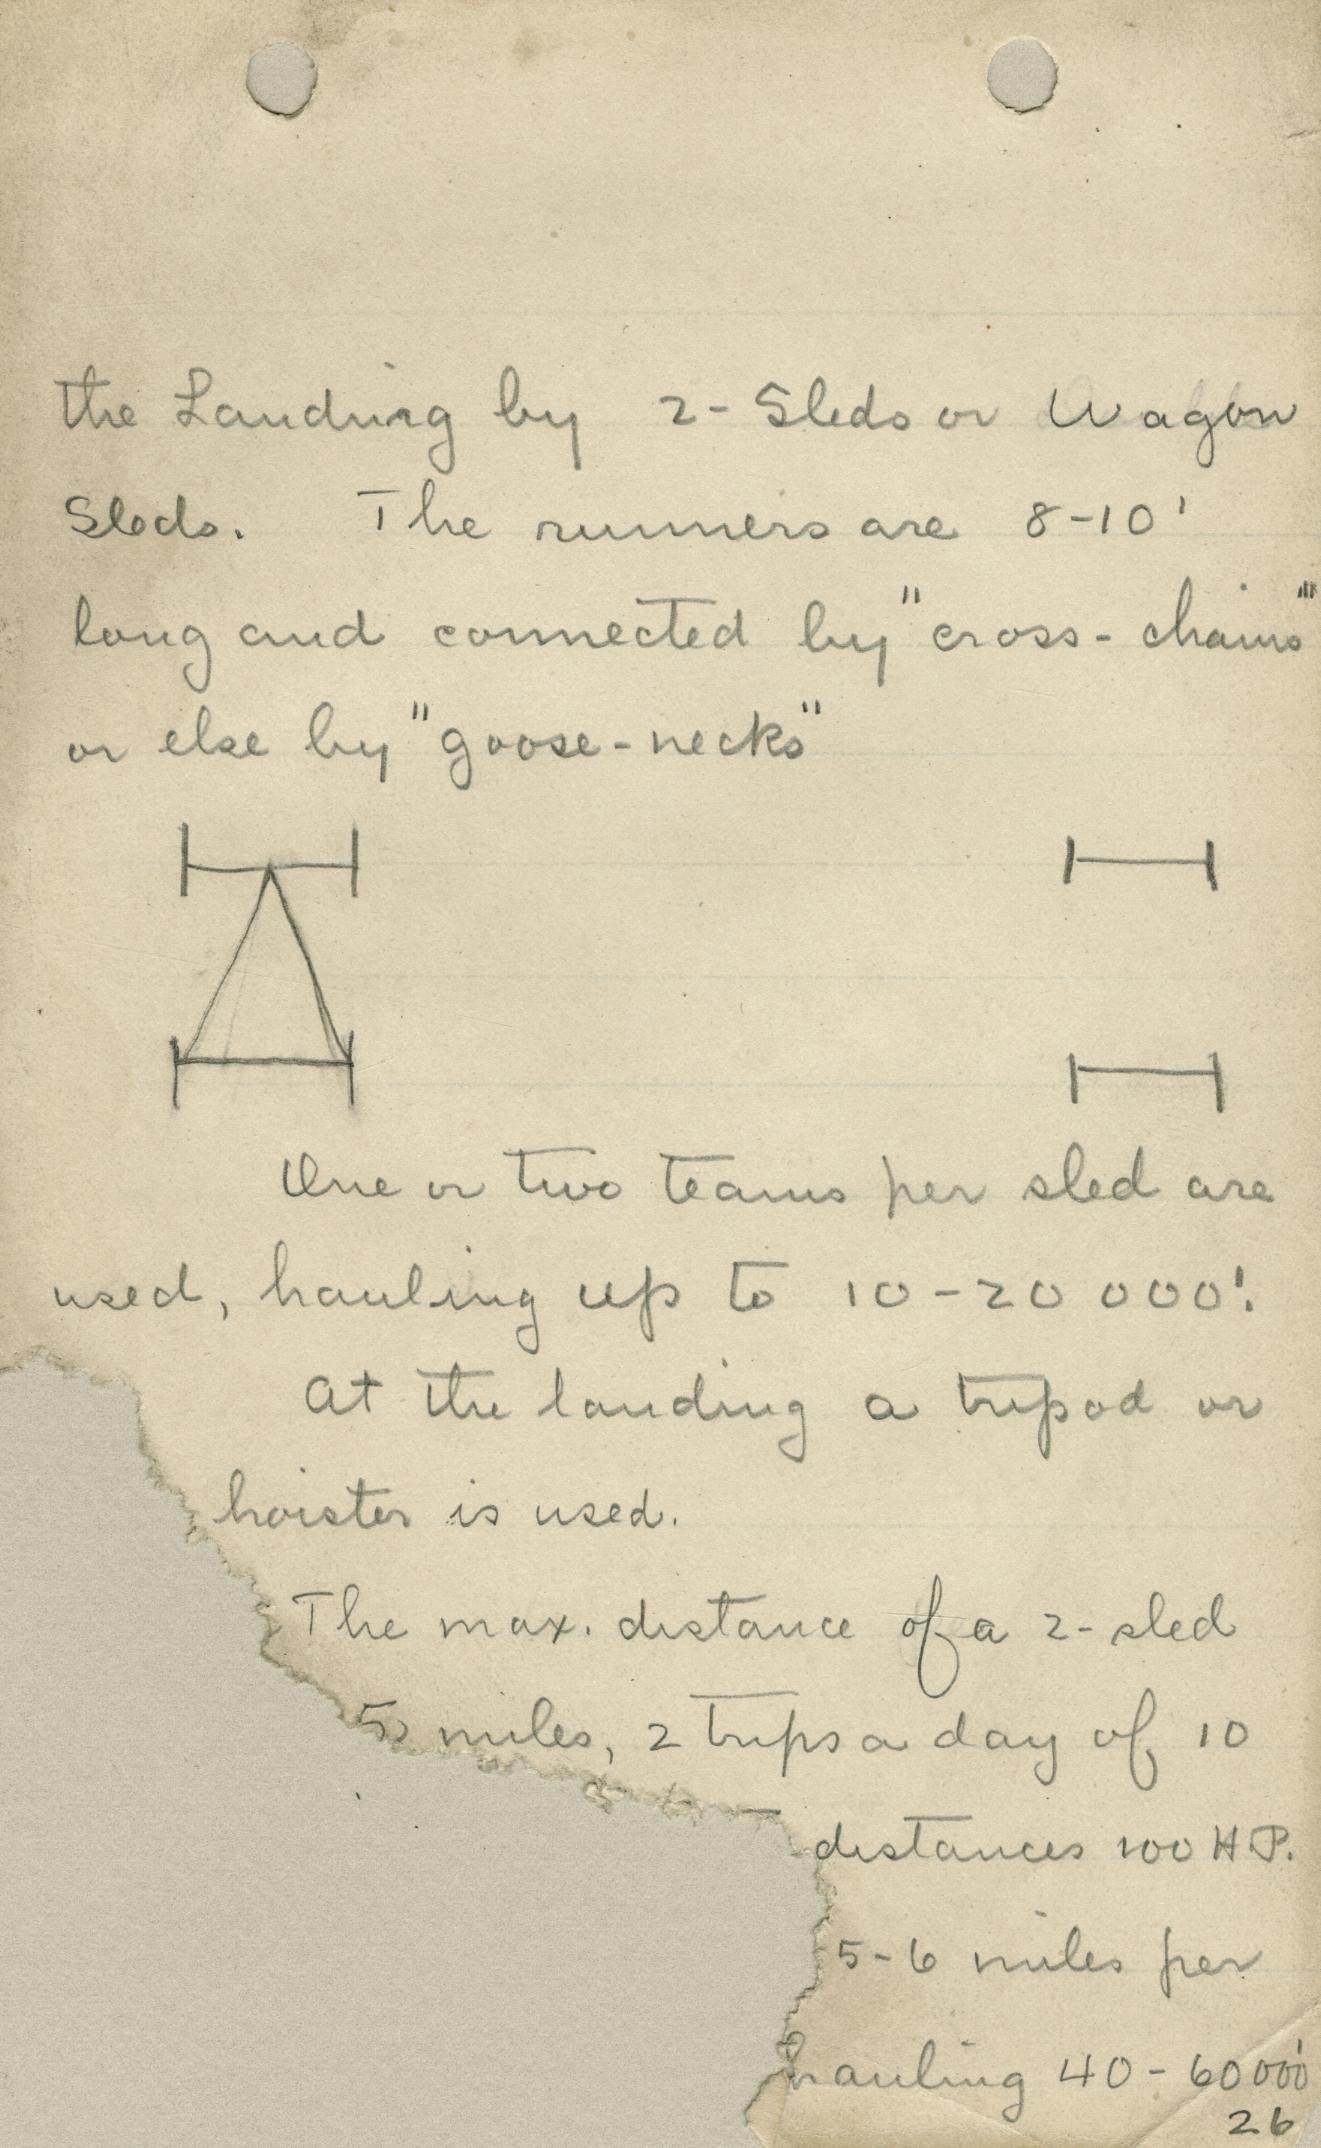 the Landing by 2-Sleds or Wagon
Sleds. The runners are 8-10'
long and connected by "cross-chains"
or else by "goose-necks"
One or two teams per sled are
used, hauling up to 10-20 000'.
At the landing a tripod or
hoister is used.
The max. distance of a 2-sled
5 miles, 2 trips a day of 10
distances 100 H.P.
5-6 miles per
hauling 40-60000'
26